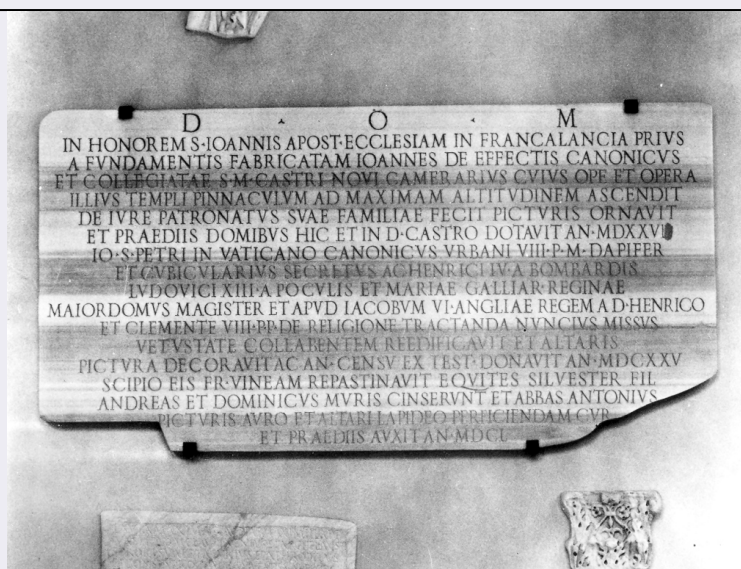 D · O · M
IN HONOREM S·IOANNIS APOST·ECCLESIAM IN FRANCALANCIA PRIVS
A FVNDAMENTIS FABRICATAM IOANNES DE EFFECTIS CANONICVS
ET COLLEGIATAE S·M·CASTRI NOVI CAMERARIVS CVIVS OPE ET OPERA
ILLIVS TEMPLI PINNACVLVM AD MAXIMAM ALTITVDINEM ASCENDIT
DE IVRE PATRONATVS SVAE FAMILIAE FECIT PICTVRIS ORNAVIT
ET PRAEDIIS DOMIBVS HIC ET IN D·CASTRO DOTAVIT AN·MDXXVI
IO·S·PETRI IN VATICANO CANONICVS VRBANI VIII·P·M·DAPIFER
ET CVBICVLARIVS SECRETVS AC HENRICI IV·A BOMBARDIS
LVDOVICI XIII·A POCVLIS ET MARIAE GALLIAR·REGINAE
MAIORDOMVS MAGISTER ET APVD IACOBVM VI·ANGLIAE REGEM AD·HENRICO
ET CLEMENTE VIII·PP·DE RELIGIONE TRACTANDA NVNCIVS MISSVS
VETVSTATE COLLABENTEM REEDIFICAVIT ET ALTARIS
PICTVRA DECORAVIT AC AN·CENSV EX TEST·DONAVIT AN·MDCXXV
SCIPIO EIS FR·VINEAM REPASTINAVIT EQVITES SILVESTER FIL
ANDREAS ET DOMINICVS MVRIS CINSERVNT ET ABBAS ANTONIVS
PICTVRIS AVRO ET ALTARI LAPIDEO PERFICIENDAM CVR
ET PRAEDIIS AVXIT AN·MDCL